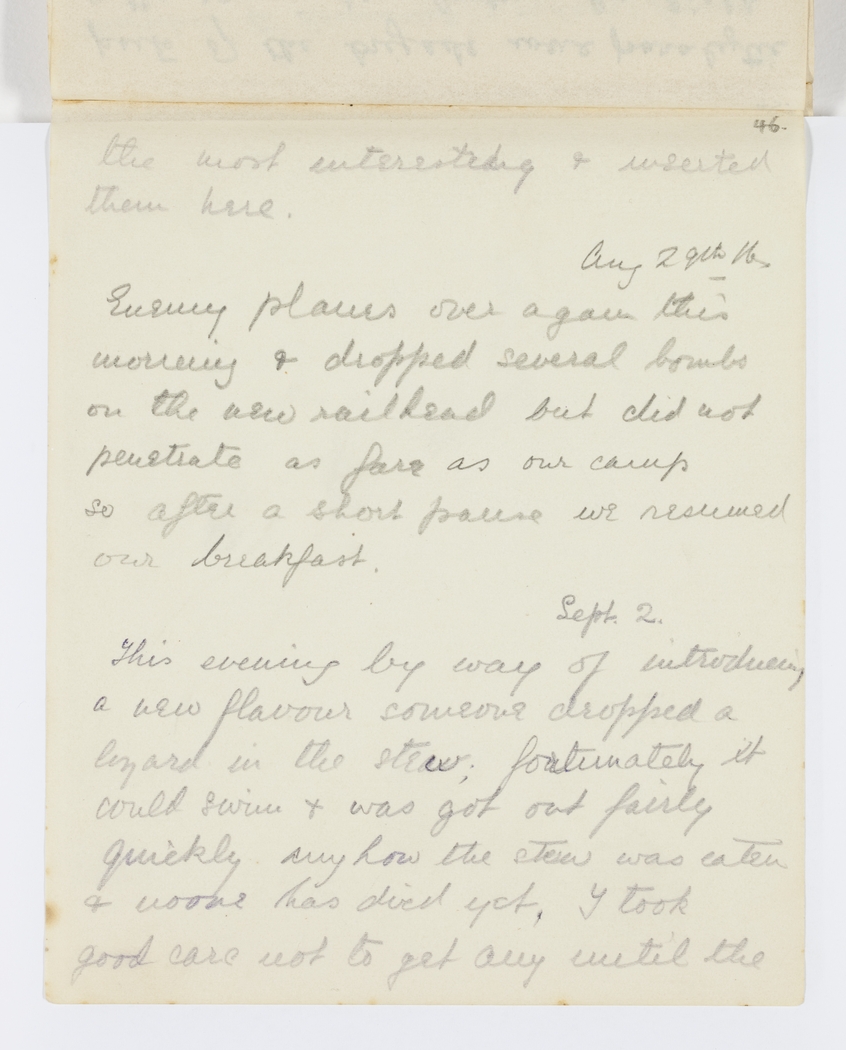 46.
the most interesting & inserted
them here.
Aug 29th 16.
Enemy planes over again this
morning & dropped several bombs
on the new railhead but did not
penetrate as far as our camp
so after a short pause we resumed
our breakfast.
Sept. 2.
This evening by way of introducing
a new flavour someone dropped a
lizard in the stew, fortunately it
could swim & was got out fairly
quickly. anyhow the stew was eaten
& noone has died yet, I took
good care not to get any until the